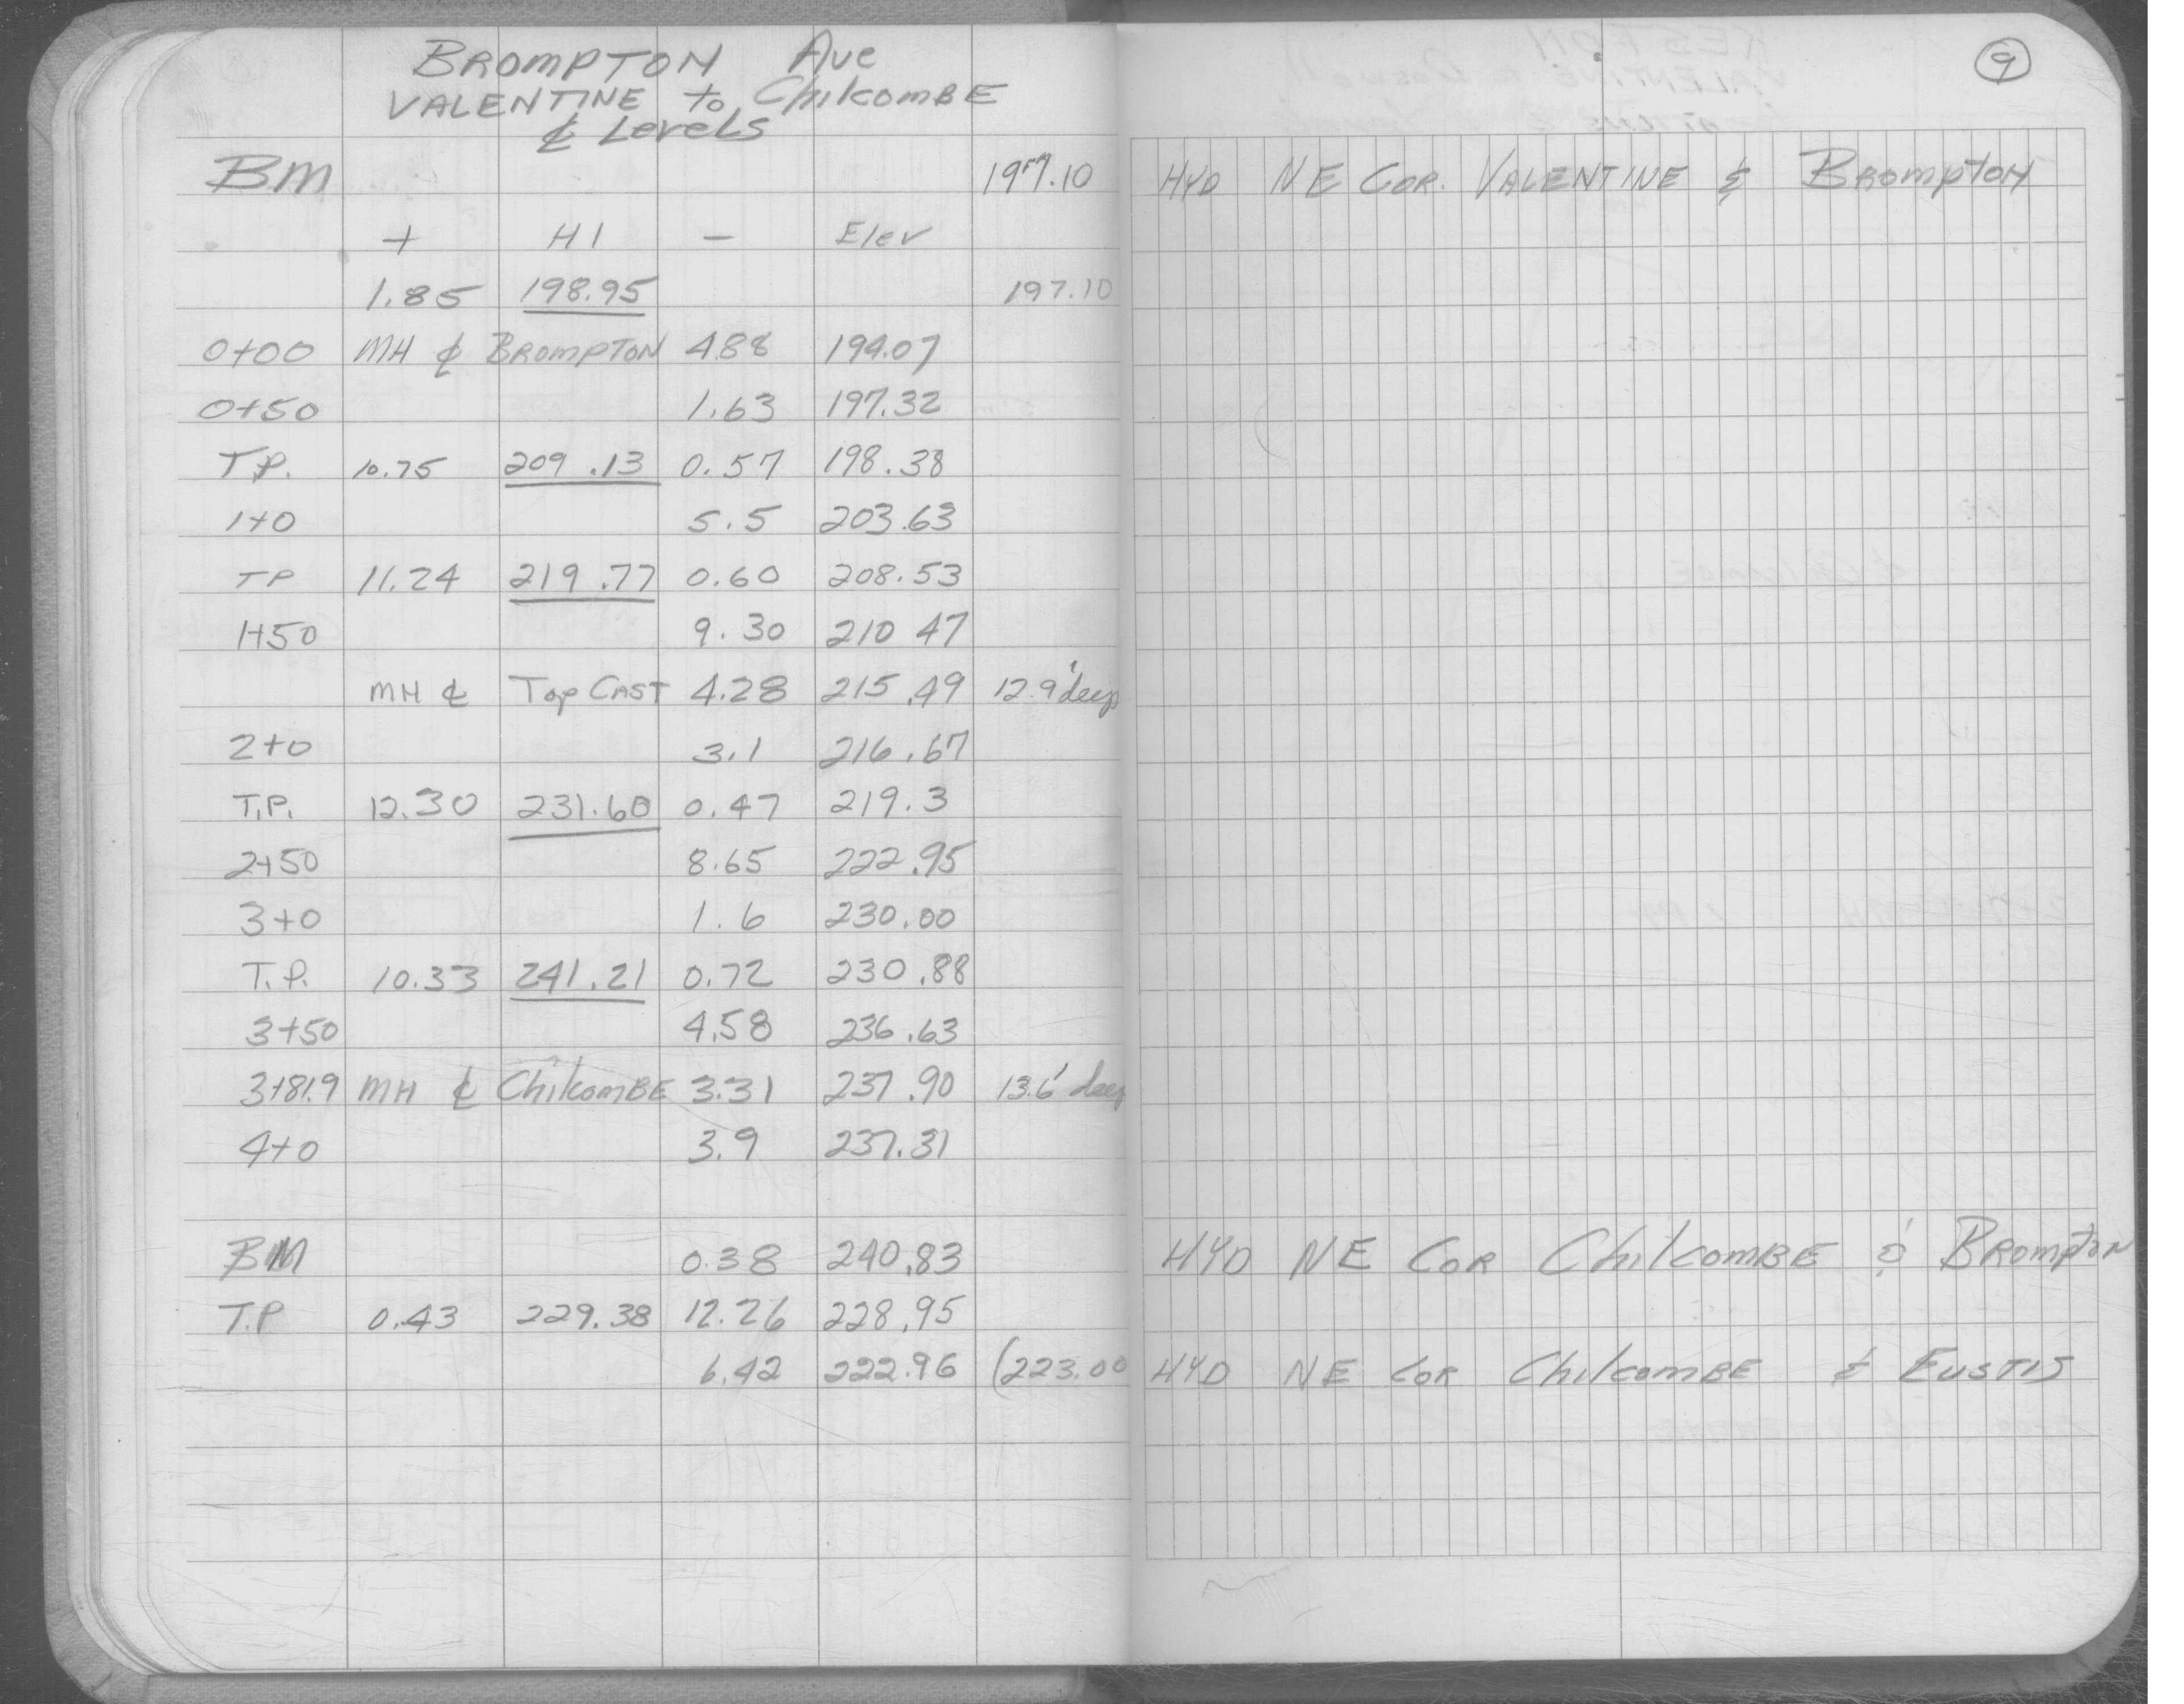 BROMPTON Ave
VALENTINE to ChilcomBE
℄ Levels
9
BM 197.10 HYD NE COR. VALENTINE & BROMPTON
+ HI - Elev
1.85 198.95 197.10
0+00 MH ℄ BROMPTON 4.88 194.07
0+50 1.63 197.32
T.P. 10.75 209.13 0.57 198.38
1+0 5.5 203.63
TP 11.24 219.77 0.60 208.53
1+50 9.30 210 47
MH ℄ Top CAST 4.28 215.49 12.9' deep
2+0 3.1 216.67
T.P. 12.30 231.60 0.47 219.3
2+50 8.65 222.95
3+0 1.6 230.00
T.P. 10.33 241.21 0.72 230.88
3+50 4.58 236.63
3+81.9 MH ℄ ChilcomBE 3.31 237.90 13.6' deep
4+0 3.9 237.31
BM 0.38 240.83 HYD NE COR ChilcomBE & BROMPTON
T.P 0.43 229.38 12.26 228.95
6.42 222.96 (223.00 HYD NE COR ChilcomBE & EUSTIS